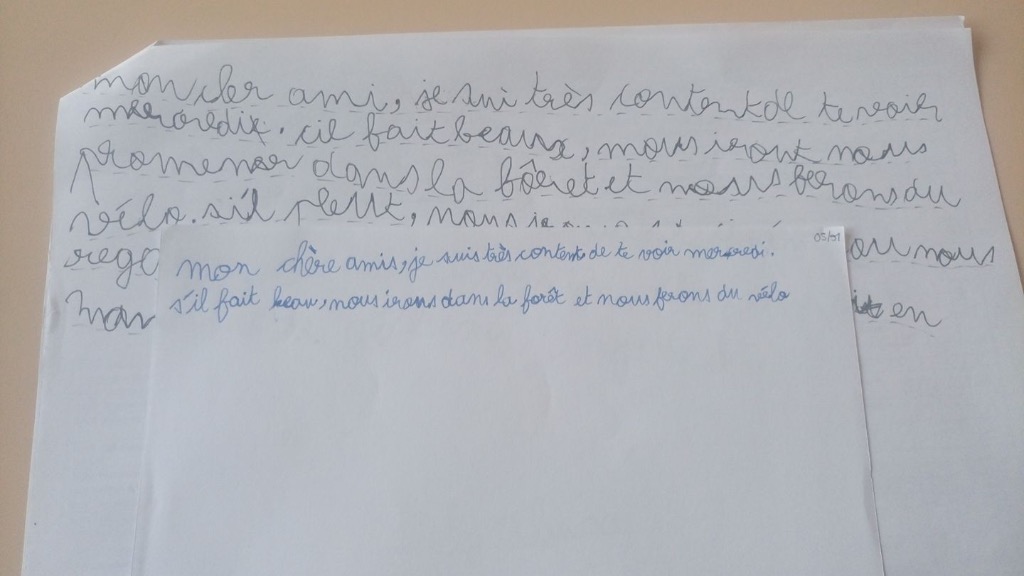 mon cher ami, je sui très content de te voir
mercredix. cil fait beaux, nous iront nous
promener dans la fôret et nous ferons du
vélo. s'il pleut, nous
ou nous
en
05/01
mon chère amis, je suis très content de te voir mercredi.
s'il fait beau, nous irons dans la forêt et nous ferons du vélo